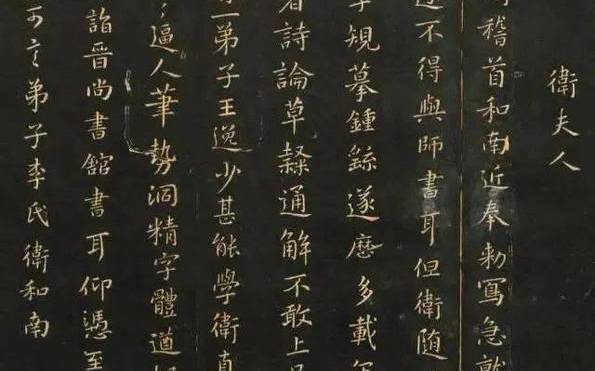 衛夫人
稽首和南近奉勅寫急就
不得與師書耳但衛隨
規摹鍾繇遂歷多載年
詩論草隸通解不敢上
一弟子王逸少甚能學衛真
逼人筆勢洞精字體遒
詣晉尚書館書耳仰憑至
可言弟子李氏衛和南